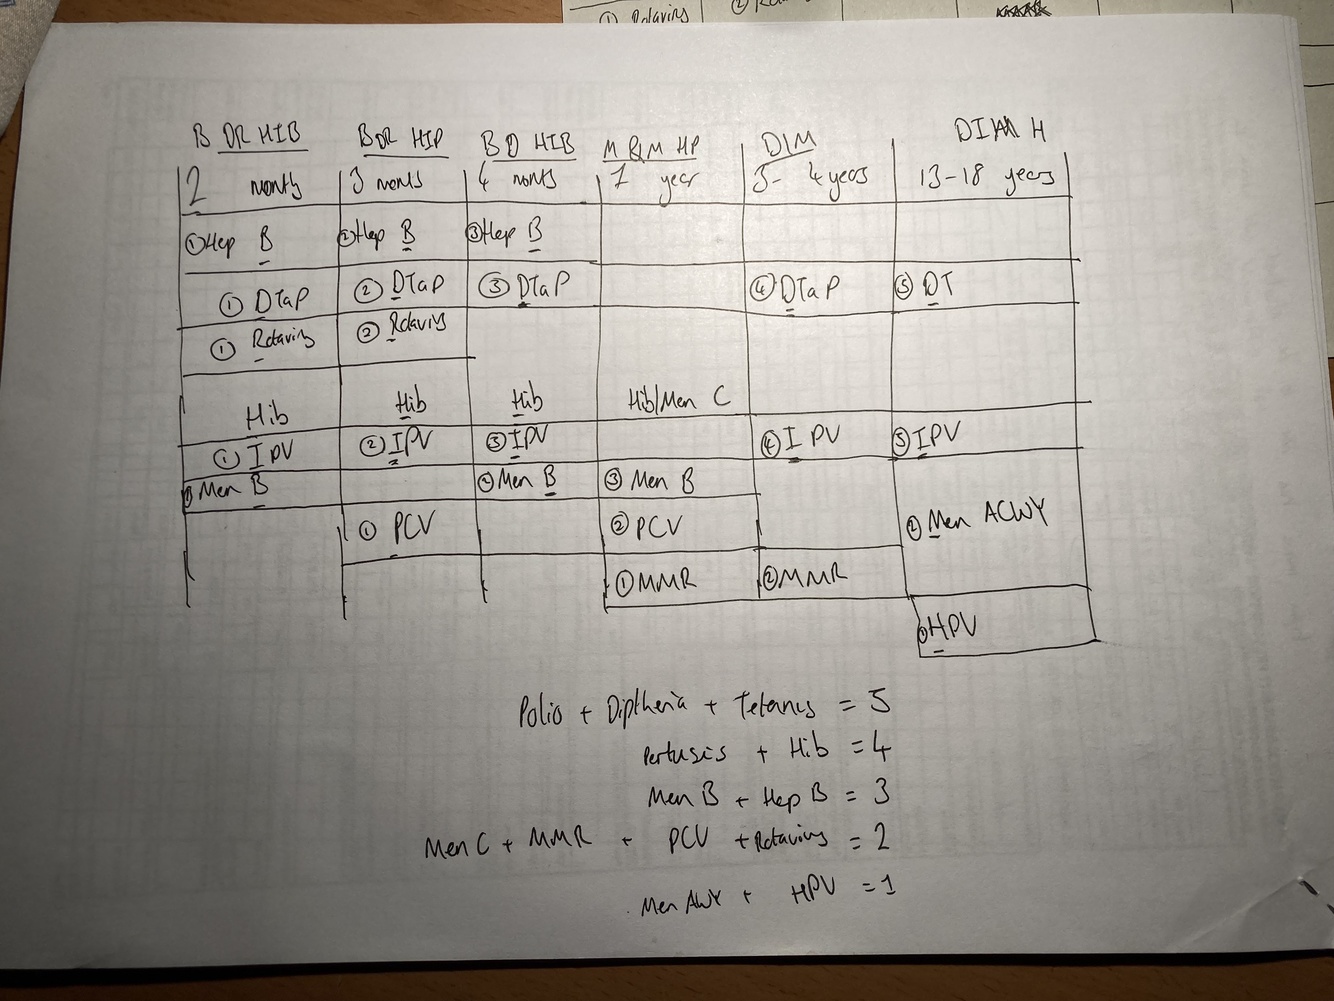 ① Rotavirus ②
B DR HIB BDR HIP B D HIB M R&M HP DIM DIMM H
2 months 3 months 4 months 1 year 3- 4 years 13-18 years
① Hep B ② Hep B ③ Hep B
① DTaP ② DTaP ③ DTaP ④ DTaP ⑤ DT
① Rotavirus ② Rotavirus
Hib Hib Hib Hib/Men C
① IPV ② IPV ③ IPV ④ IPV ⑤ IPV
① Men B ② Men B ③ Men B
① PCV ② PCV ② Men ACWY
① MMR ② MMR
① HPV
Polio + Diptheria + Tetanus = 5
Pertusis + Hib = 4
Men B + Hep B = 3
Men C + MMR + PCV + Rotavirus = 2
Men AWY + HPV = 1